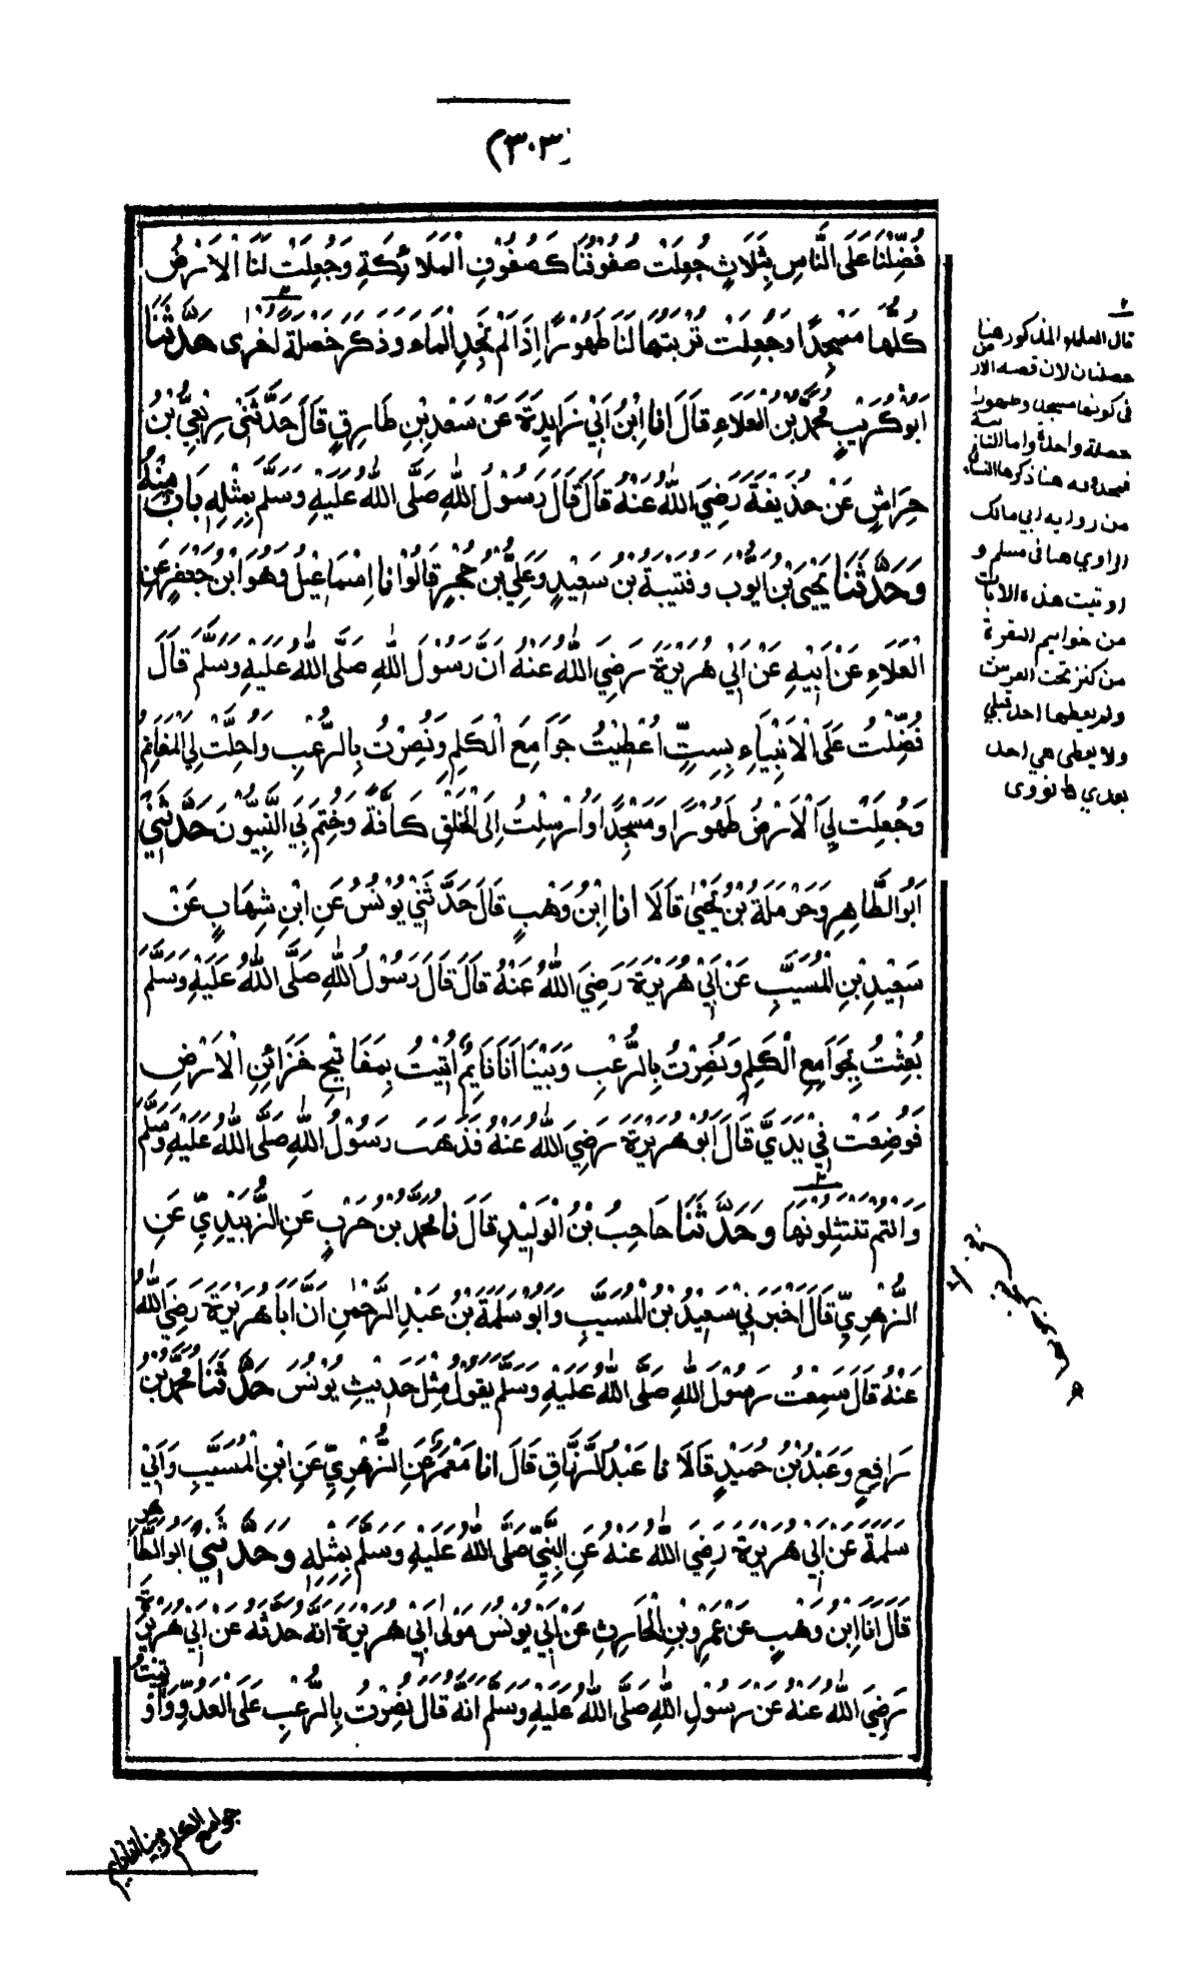 ٣٠٣
فُضِّلْنَا عَلَى النَّاسِ بِثَلَاثٍ جُعِلَتْ صُفُوْفُنَا كَصُفُوْفِ الْمَلَائِكَةِ وَجُعِلَتْ لَنَا الْاَرْضُ
كُلُّهَا مَسْجِدًا وَجُعِلَتْ تُرْبَتُهَا لَنَا طَهُوْرًا اِذَا لَمْ نَجِدِ الْمَاءَ وَذَكَرَ خَصْلَةً اُخْرٰى حَدَّثَنَا
اَبُوْ كُرَيْبٍ مُحَمَّدُ بْنُ الْعَلَاءِ قَالَ انا ابْنُ اَبِيْ زَايِدَةَ عَنْ سَعْدِ بْنِ طَارِقٍ قَالَ حَدَّثَنِيْ رِبْعِيُّ بْنُ
حِرَاشٍ عَنْ حُذَيْفَةَ رَضِيَ اللّٰهُ عَنْهُ قَالَ قَالَ رَسُوْلُ اللّٰهِ صَلَّى اللّٰهُ عَلَيْهِ وَسَلَّمَ بِمِثْلِهِ بَابٌ مِنْهُ
وَحَدَّثَنَا يَحْيَى بْنُ اَيُّوْبَ وَقُتَيْبَةُ بْنُ سَعِيْدٍ وَعَلِيُّ بْنُ حُجْرٍ قَالُوْا نا اِسْمَاعِيْلُ وَهُوَ ابْنُ جَعْفَرٍ عَنِ
الْعَلَاءِ عَنْ اَبِيْهِ عَنْ اَبِيْ هُرَيْرَةَ رَضِيَ اللّٰهُ عَنْهُ اَنَّ رَسُوْلَ اللّٰهِ صَلَّى اللّٰهُ عَلَيْهِ وَسَلَّمَ قَالَ
فُضِّلْتُ عَلَى الْاَنْبِيَاءِ بِسِتٍّ اُعْطِيْتُ جَوَامِعَ الْكَلِمِ وَنُصِرْتُ بِالرُّعْبِ وَاُحِلَّتْ لِيَ الْمَغَانِمُ
وَجُعِلَتْ لِيَ الْاَرْضُ طَهُوْرًا وَمَسْجِدًا وَاُرْسِلْتُ اِلَى الْخَلْقِ كَافَّةً وَخُتِمَ بِيَ النَّبِيُّوْنَ حَدَّثَنِيْ
اَبُو الطَّاهِرِ وَحَرْمَلَةُ بْنُ يَحْيٰى قَالَا انا ابْنُ وَهْبٍ قَالَ حَدَّثَنِيْ يُوْنُسُ عَنِ ابْنِ شِهَابٍ عَنْ
سَعِيْدِ بْنِ الْمُسَيَّبِ عَنْ اَبِيْ هُرَيْرَةَ رَضِيَ اللّٰهُ عَنْهُ قَالَ قَالَ رَسُوْلُ اللّٰهِ صَلَّى اللّٰهُ عَلَيْهِ وَسَلَّمَ
بُعِثْتُ بِجَوَامِعِ الْكَلِمِ وَنُصِرْتُ بِالرُّعْبِ وَبَيْنَا اَنَا نَايِمٌ اُتِيْتُ بِمَفَاتِيْحِ خَزَائِنِ الْاَرْضِ
فَوُضِعَتْ فِيْ يَدَيَّ قَالَ اَبُوْ هُرَيْرَةَ رَضِيَ اللّٰهُ عَنْهُ فَذَهَبَ رَسُوْلُ اللّٰهِ صَلَّى اللّٰهُ عَلَيْهِ وَسَلَّمَ
وَاَنْتُمْ تَنْتَثِلُوْنَهَا وَحَدَّثَنَا حَاجِبُ بْنُ الْوَلِيْدِ قَالَ نا مُحَمَّدُ بْنُ حَرْبٍ عَنِ الزُّبَيْدِيِّ عَنِ
الزُّهْرِيِّ قَالَ اَخْبَرَنِيْ سَعِيْدُ بْنُ الْمُسَيَّبِ وَاَبُوْ سَلَمَةَ بْنُ عَبْدِ الرَّحْمٰنِ اَنَّ اَبَا هُرَيْرَةَ رَضِيَ اللّٰهُ
عَنْهُ قَالَ سَمِعْتُ رَسُوْلَ اللّٰهِ صَلَّى اللّٰهُ عَلَيْهِ وَسَلَّمَ يَقُوْلُ مِثْلَ حَدِيْثِ يُوْنُسَ حَدَّثَنَا مُحَمَّدُ بْنُ
رَافِعٍ وَعَبْدُ بْنُ حُمَيْدٍ قَالَا نا عَبْدُ الرَّزَّاقِ قَالَ انا مَعْمَرٌ عَنِ الزُّهْرِيِّ عَنِ ابْنِ الْمُسَيَّبِ وَاَبِيْ
سَلَمَةَ عَنْ اَبِيْ هُرَيْرَةَ رَضِيَ اللّٰهُ عَنْهُ عَنِ النَّبِيِّ صَلَّى اللّٰهُ عَلَيْهِ وَسَلَّمَ بِمِثْلِهِ وَحَدَّثَنِيْ اَبُو الطَّاهِرِ
قَالَ اَنَا ابْنُ وَهْبٍ عَنْ عَمْرِو بْنِ الْحَارِثِ عَنْ اَبِيْ يُوْنُسَ مَوْلٰى اَبِيْ هُرَيْرَةَ اَنَّهُ حَدَّثَهُ عَنْ اَبِيْ هُرَيْرَةَ
رَضِيَ اللّٰهُ عَنْهُ عَنْ رَسُوْلِ اللّٰهِ صَلَّى اللّٰهُ عَلَيْهِ وَسَلَّمَ اَنَّهُ قَالَ نُصِرْتُ بِالرُّعْبِ عَلَى الْعَدُوِّ وَاُوْتِيْتُ
جوامع الكلم وبينا انا نايم
قال العلماء المذكور هنا
خصلتان لان قصة الارض
في كونها مسجدا وطهورا
خصلة واحدة واما الثالثة
فمحذوفه هنا ذكرها النسائي
من رواية ابي مالك
الراوي هنا في مسلم و
اوتيت هذه الآيات
من خواتيم البقرة
من كنز تحت العرش
ولم يعطها احد قبلي
ولا يعطى هي احد
بعدي نووى